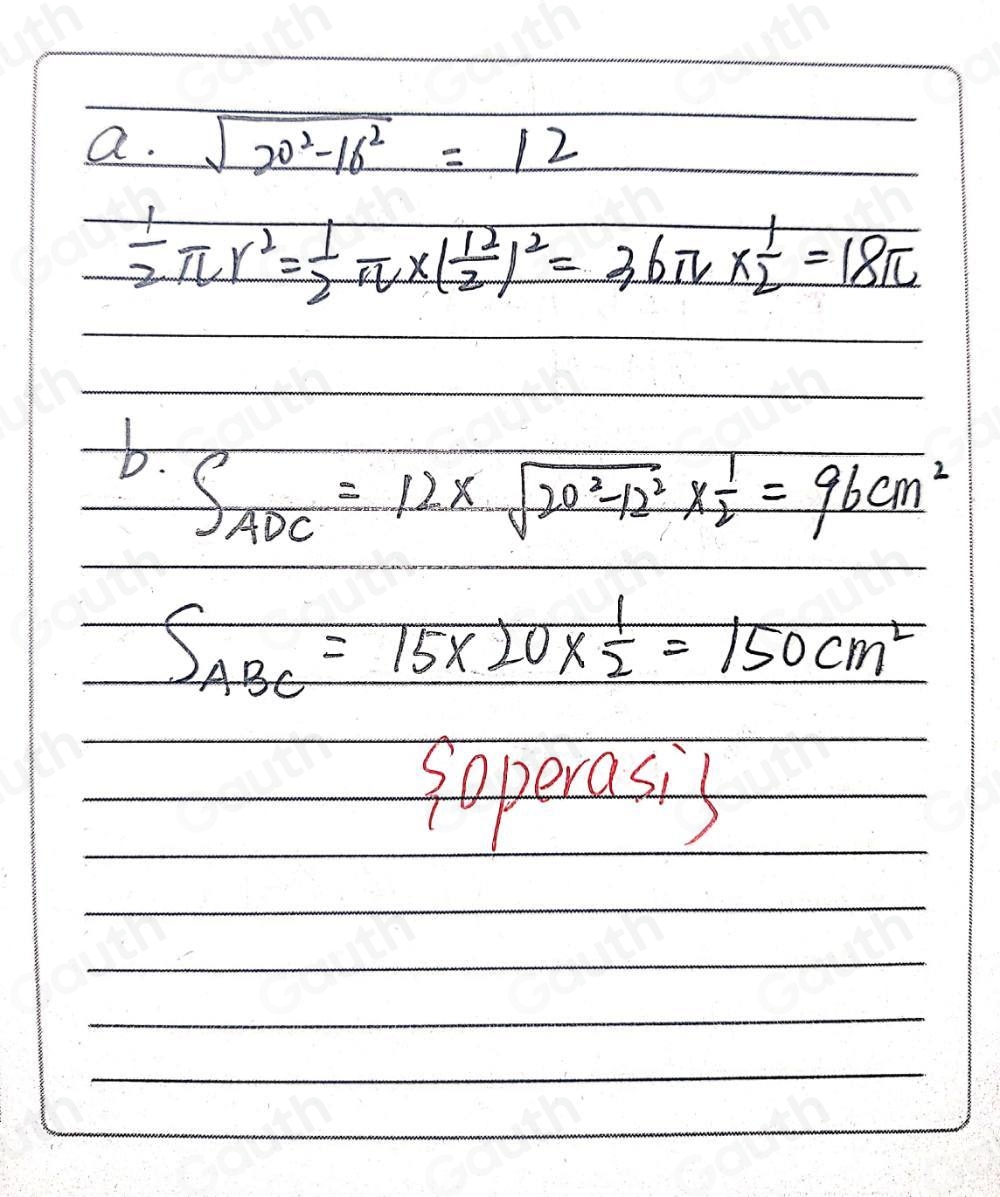 a. √(20²-16²) = 12
1/2 πr² = 1/2 π×(12/2)² = 36π × 1/2 = 18π
b. S_ADC = 12 × √(20²-12²) × 1/2 = 96cm²
S_ABC = 15×20×1/2 = 150cm²
{operasi}